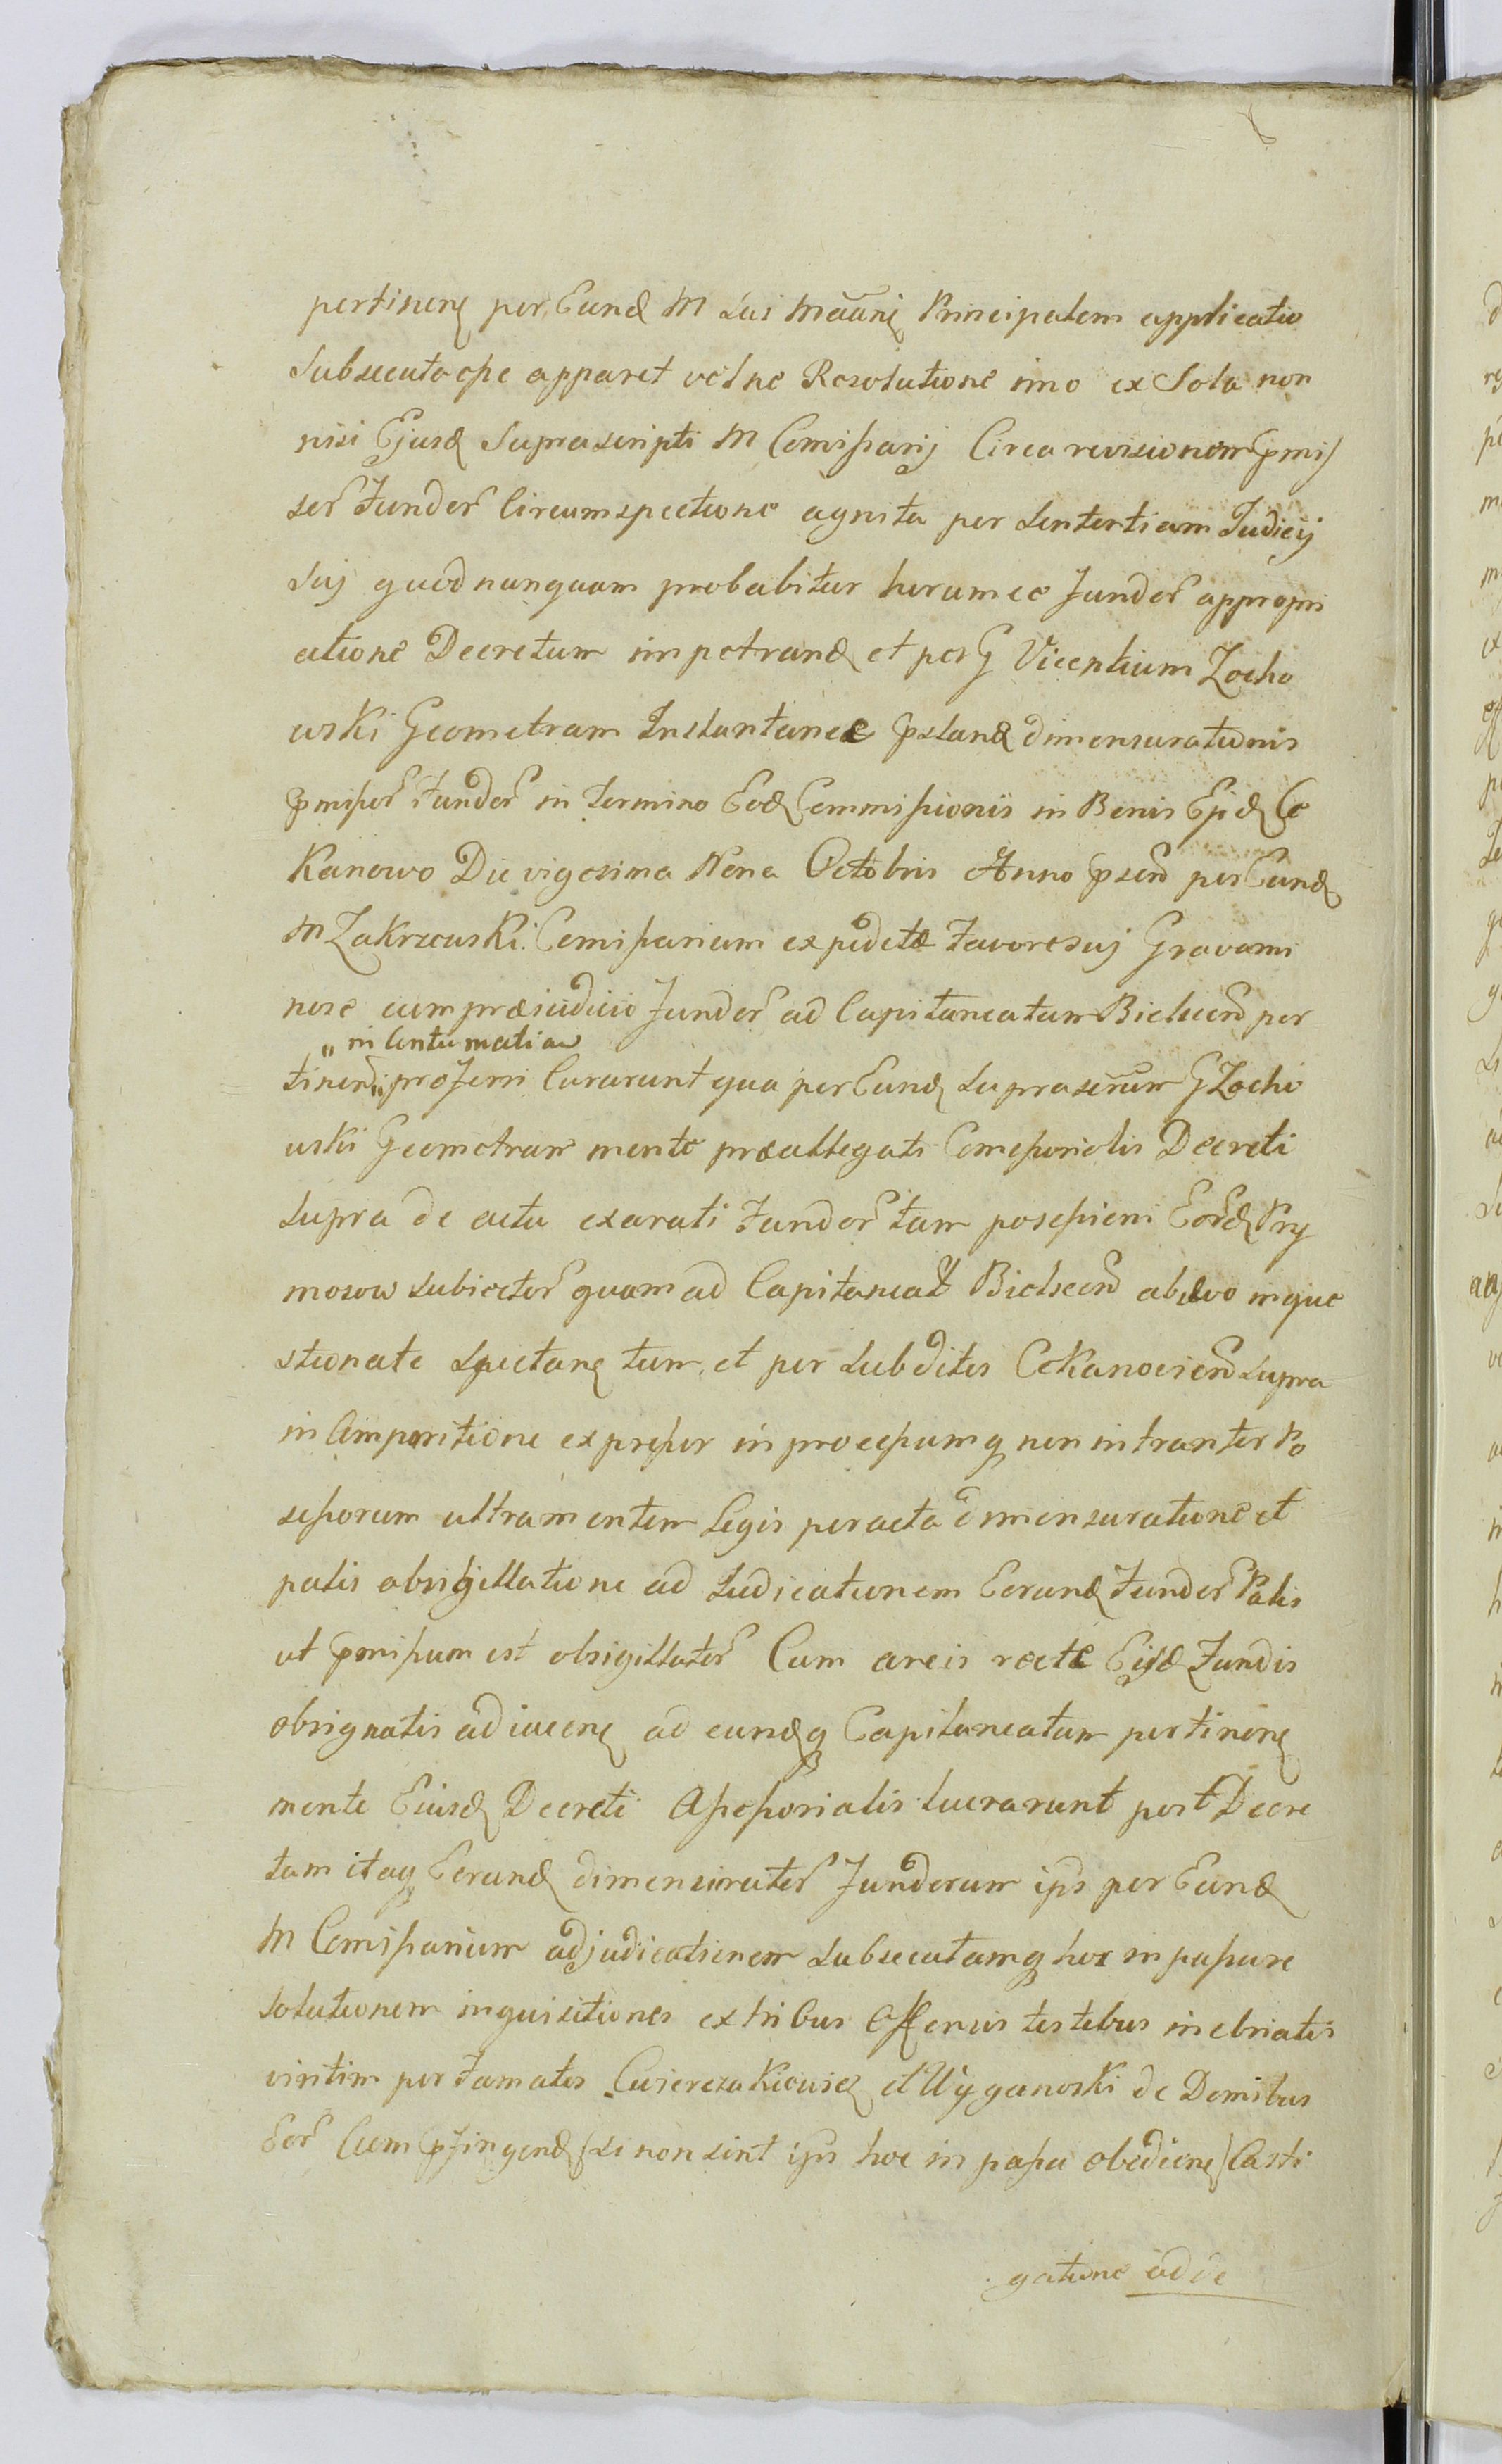 pertinen per Eund M Sui Principalem applicatio
Subsecuta apparet vel ne Resolutione imo ex Sola non
nisi Ejusd Suprascripti M Comissarij Circa revisionem pmis
sor Fundor Circumspectione agnita per Sententiam Judicij
Sui quod nunquam probabitur horumce Fundor appropri
atione Decretum impetrand et per G Vicentium Zocho
wski Geometram Instantanee pstand dimensurationis
pmissor Fundor in Termino Eod Commissionis in Bonis Ejd Ce
Kanowo Die vigesima Nona Octobris Anno psen per Eund
M Zakrzewski Comissarium expedite Favore suj Gravami
nose cum præiudicio Fundor ad Capitaneatum Bielscen per
„ in Contumatiam
tinen „ proferri Curarunt qua per Eund Suprascrum G Zocho
wski Geometram mente præallegati Comissorialis Decreti
Supra de actu exarati Fundor tam possessioni Eord Pry
mosow Subiector quam ad Capitaneat Bielscen ab ævo inque
stionate Spectan tum et per Subditos CeKanovien Supra
in Comparitione expressor in processumq non intrantes Po
sessorum ultra mentem Legis peracta dimensuratione et
palis obsigillatione ad Iudicationem Eorund Fundor Palis
ut pmissum est obsigillator Cum areis recte Eisd Fundis
obsignatis adiacen ad eundq Capitaneatum pertinen
mente Eiusd Decreti Assessorialis lucrarunt post Decre
tam itaq Eorund dimensurator Fundorum ips per Eund
M Comissarium adjudicationem Subsecutamq hoc in passu re
Solutionem inquisitiones ex tribus testibus inebriatis
viritim per Famatos Cwierczakiewicz et Wyganoski de Domibus
Eor Cum pfingend si non sint ips hoc in passu obedien Casti
gatione ad de